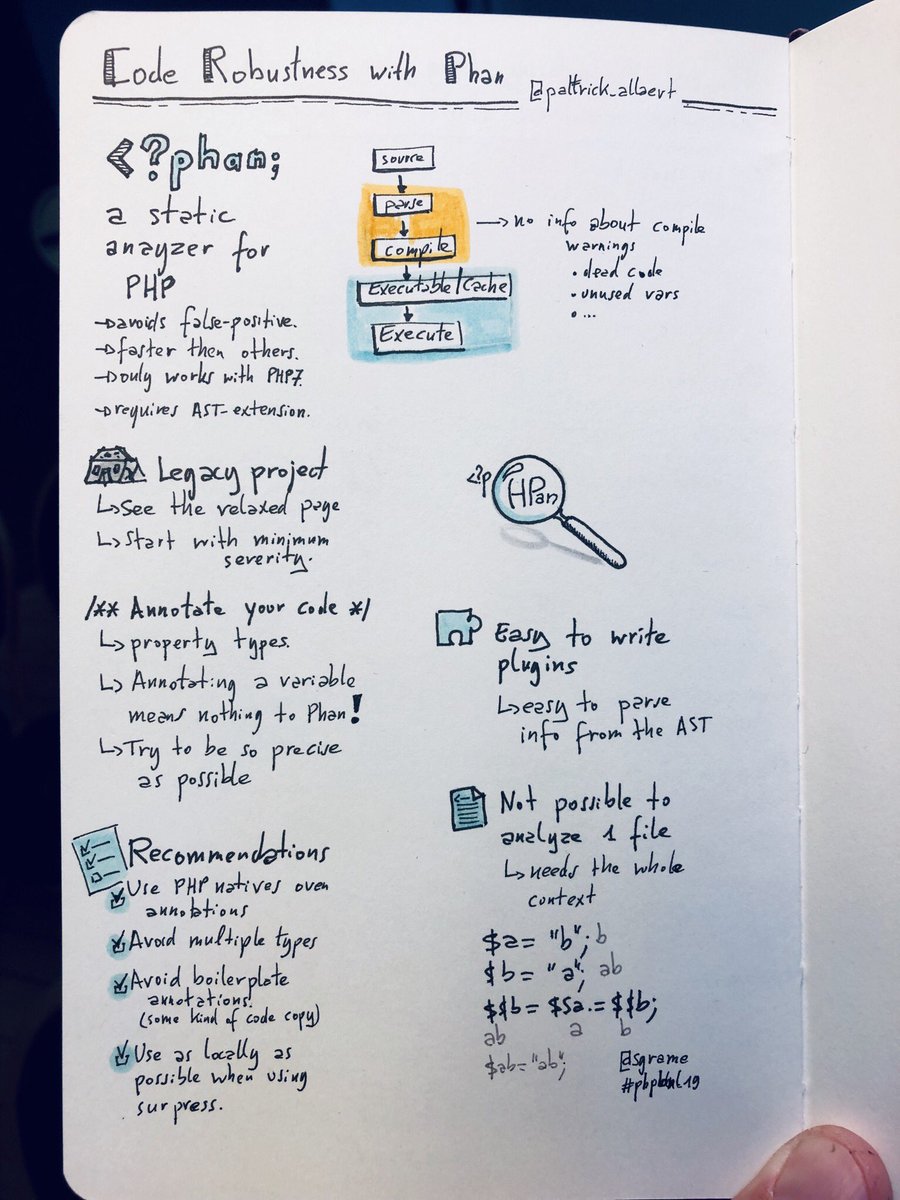 Code Robustness with Phan
@pattrick_allaert
<?phan;
a static
anayzer for
PHP
→avoids false-positive.
→faster then others.
→only works with PHP7.
→requires AST-extension.
source
parse
compile
Executable/Cache
Execute
→no info about compile
warnings
• dead code
• unused vars
• ...
Legacy project
↳see the relaxed page
↳start with minimum
severity.
<?p HPan
/** Annotate your code */
↳property types.
↳Annotating a variable
means nothing to Phan!
↳Try to be so precise
as possible
Easy to write
plugins
↳easy to parse
info from the AST
Recommendations
Use PHP natives over
annotations
Avoid multiple types
Avoid boilerplate
annotations.
(some kind of code copy)
Use as locally as
possible when using
surpress.
Not possible to
analyze 1 file
↳needs the whole
context
$a= "b"; b
$b= "a"; ab
$$b= $$a.= $$b;
ab a b
$ab="ab";
@sgrame